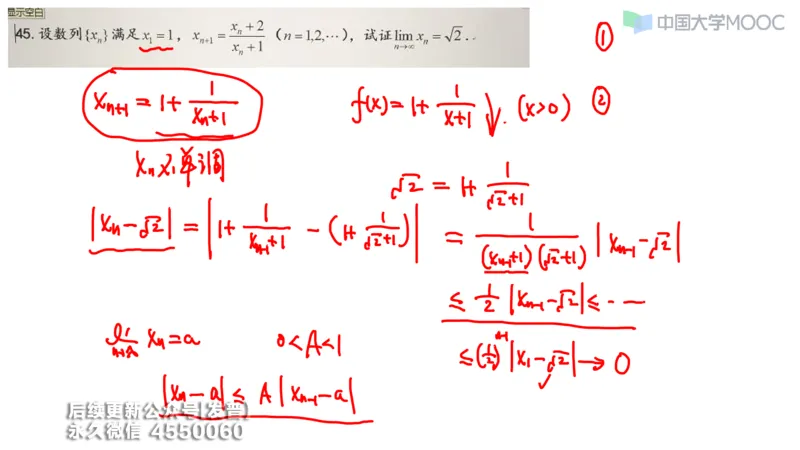 显示空白
45. 设数列{xₙ}满足x₁=1, xₙ₊₁=(xₙ+2)/(xₙ+1) (n=1,2,⋯), 试证lim_{n→∞} xₙ=√2.
中国大学MOOC
①
xₙ₊₁ = 1+ 1/(xₙ+1)
f(x)=1+ 1/(x+1) ↓. (x>0)
②
xₙ 不单调
√2 = 1+ 1/(√2+1)
|xₙ-√2| = |1+ 1/(xₙ₋₁+1) - (1+ 1/(√2+1))| = 1/((xₙ₋₁+1)(√2+1)) |xₙ₋₁-√2|
≤ 1/2 |xₙ₋₁-√2| ≤ ⋯
≤ (1/2)ⁿ⁻¹ |x₁-√2| → 0
lim_{n→∞} xₙ=a 0<A<1
|xₙ-a| ≤ A |xₙ₋₁-a|
后续更新公众号[发普]
永久微信 4550060